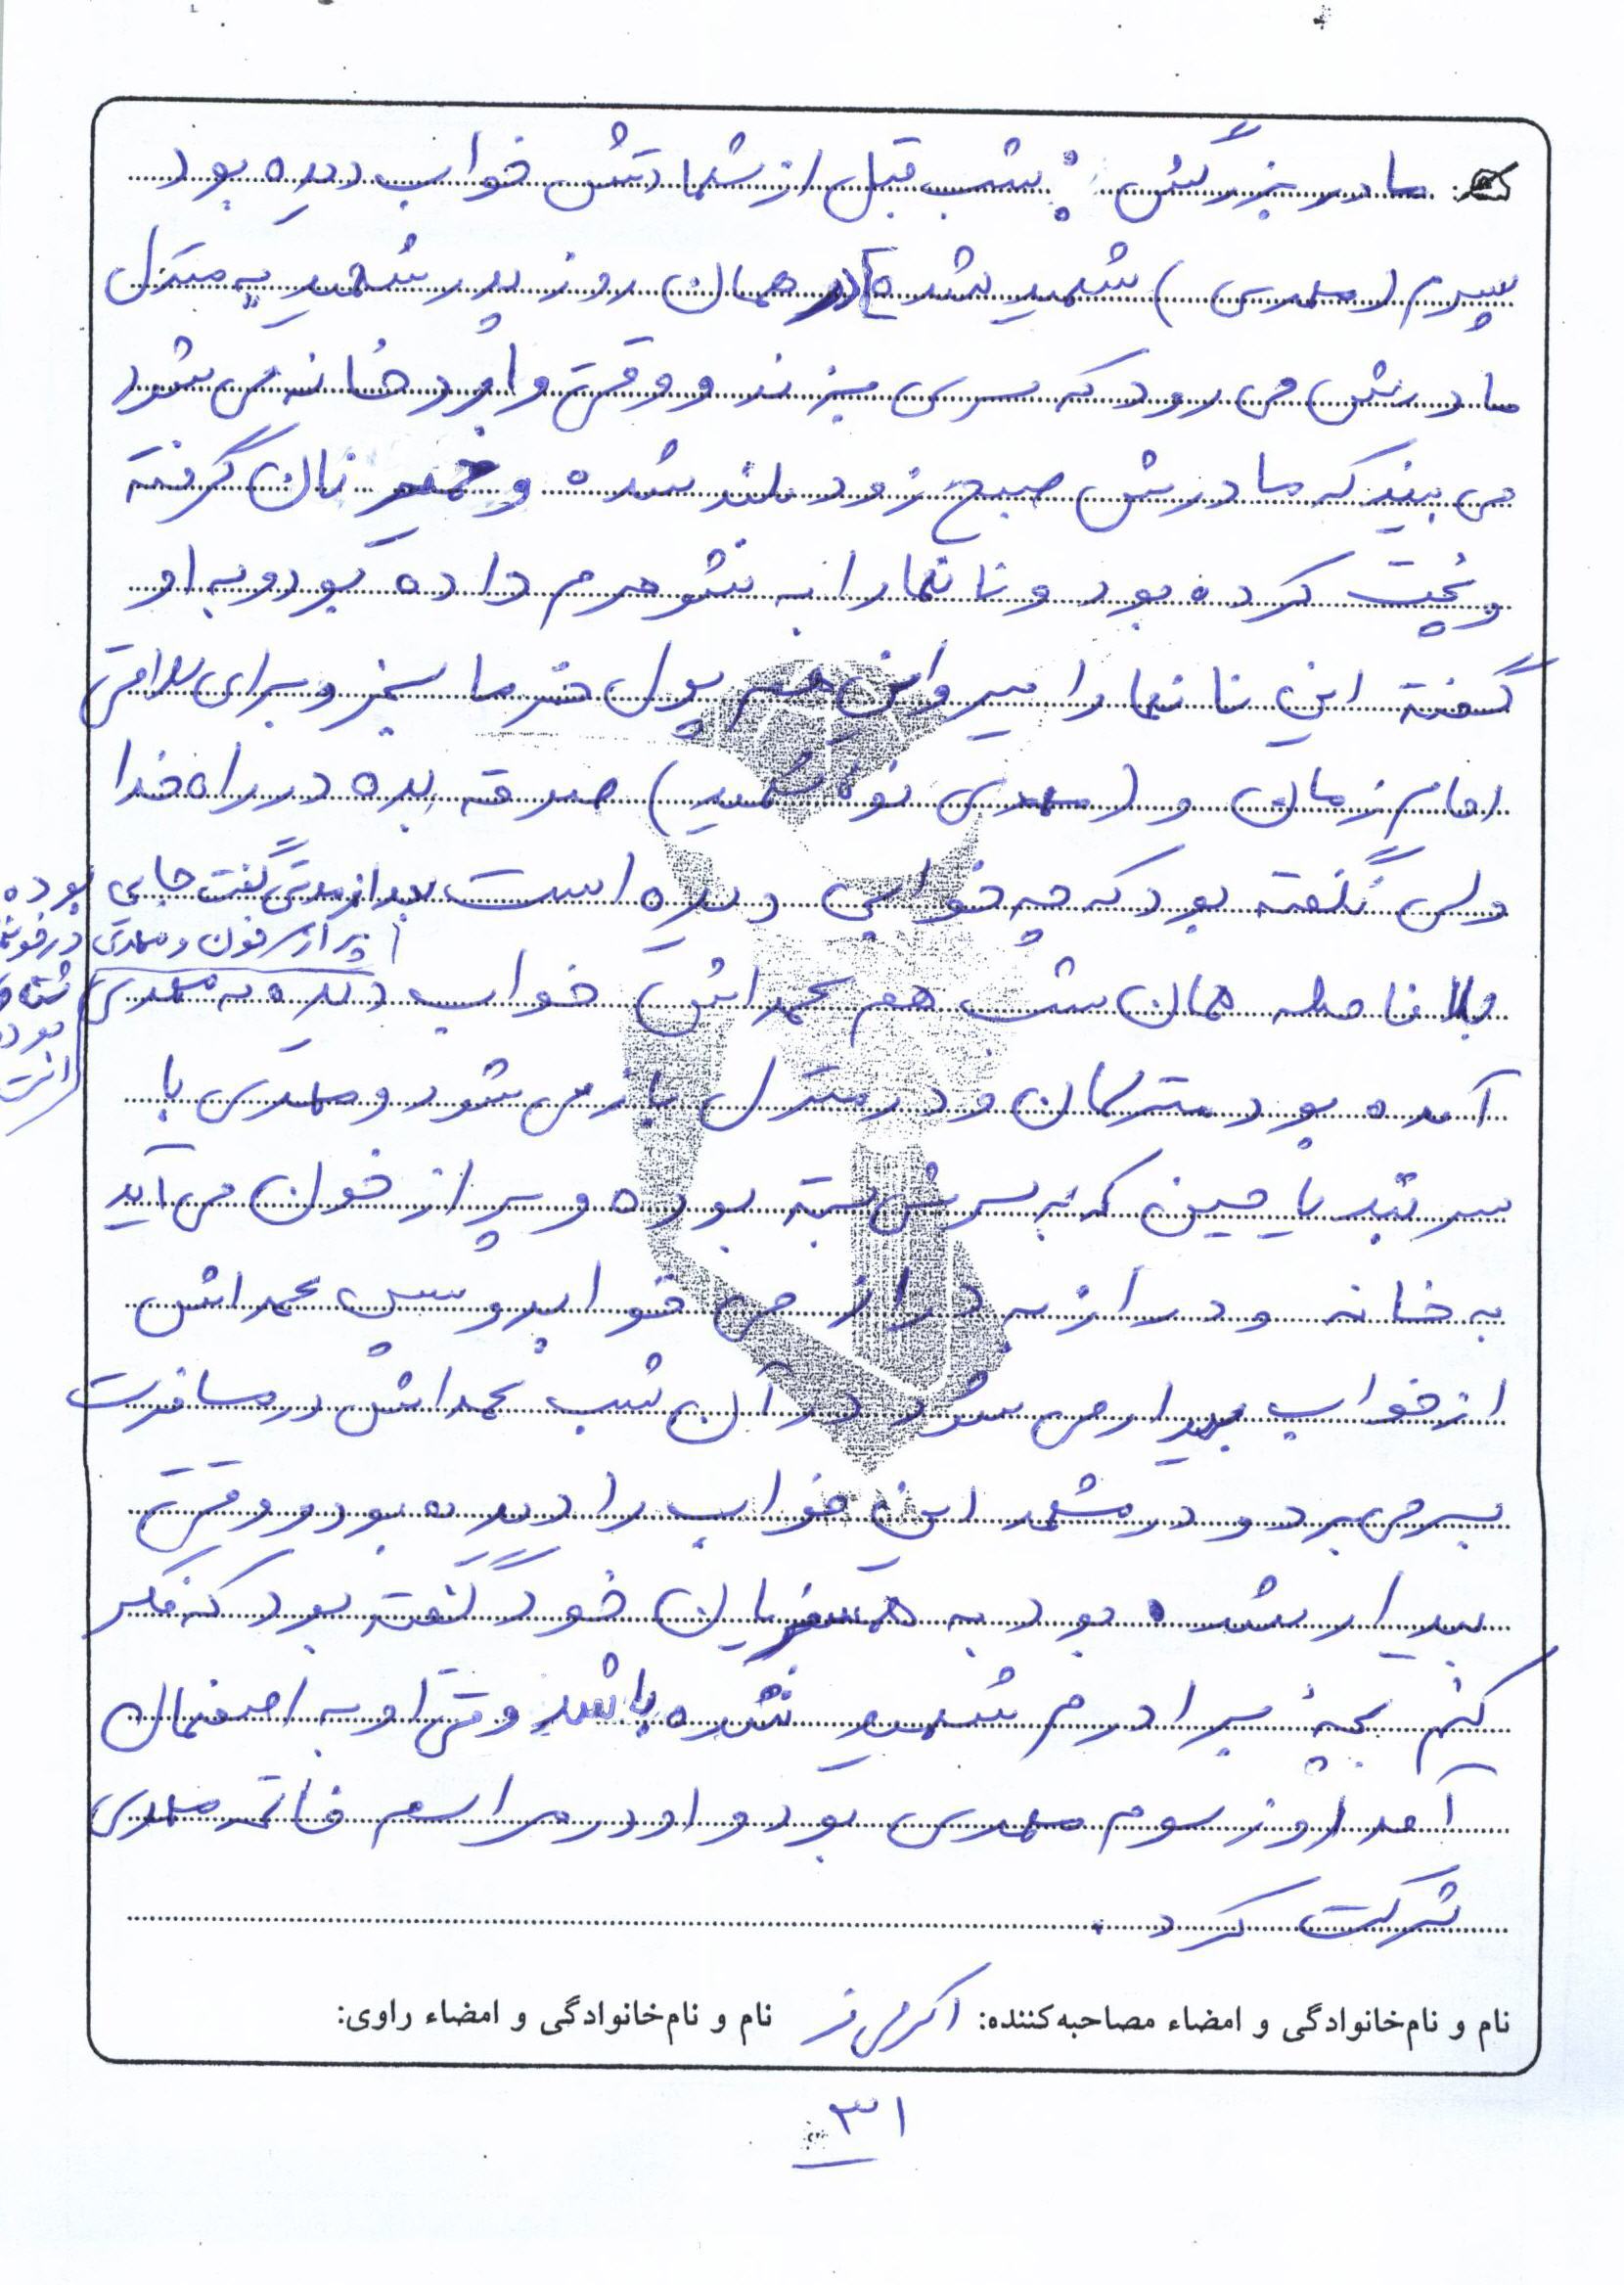 مادر بزرگش: شب قبل از شهادتش خواب دیده بود
پسرم (مهدی) شهید شده] در همان روز پدر شهید به منزل
مادرش می رود که سری بزند و وقتی وارد خانه می شود
می بیند که مادرش صبح زود بلند شده و خمیر نان گرفته
و پخت کرده بود و نانها را به شوهرم داده بود و به او
گفته این نانها را ببر و این پول خرما بخر و برای سلامتی
امام زمان و (مهدی نوه شهید) صدقه بده در راه خدا
ولی نگفته بود که چه خوابی دیده است بعد از مدتی گفت جایی بوده
پر از خون و مهدی در خونها
بلافاصله همان شب هم عمه اش خواب دیده که مهدی
بوده
آمده بود منزلمان و در منزل باز می شود و مهدی با
سربند یا حسین که به سرش بسته بوده و پر از خون می آید
به خانه و دراز به دراز می خوابد و سپس عمه اش
از خواب بیدار می شود در آن شب عمه اش در مسافرت
بسر می برد و در مشهد این خواب را دیده بود و وقتی
بیدار شده بود به همسفریان خود گفته بود که فکر
کنم بچۀ برادرم شهید شده باشد وقتی او به اصفهان
آمد روز سوم مهدی بود و او در مراسم فاتحه مهدی
شرکت کرد.
نام و نام‌خانوادگی و امضاء مصاحبه‌کننده: نام و نام‌خانوادگی و امضاء راوی:
۳۱